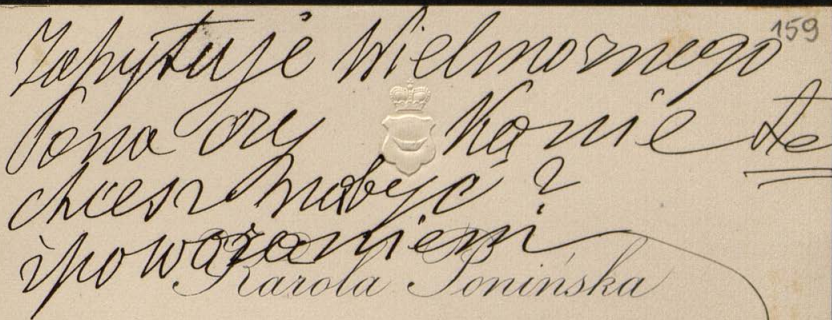 159
Zapytuję Wielmoznego
Pana czy Konie te
chcesz nabyć?
z powozaniem
Karola Ponińska